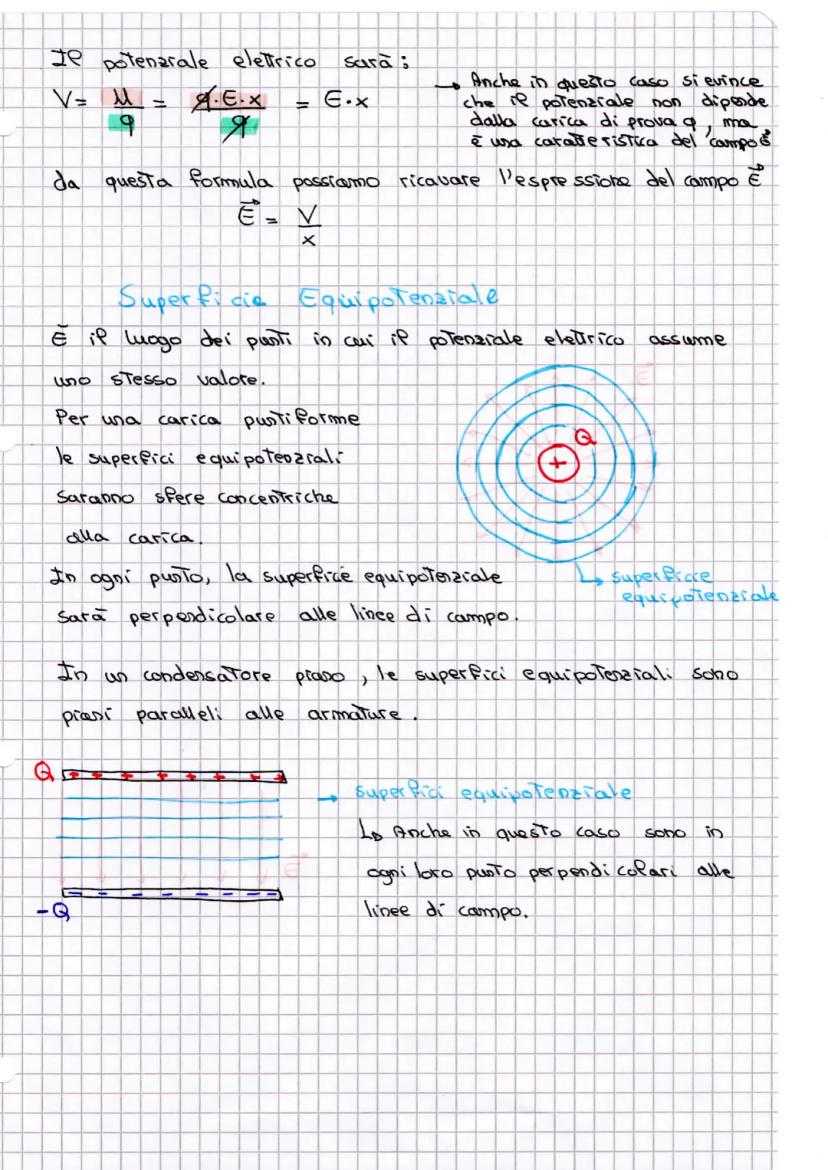 Il potenziale elettrico sarà:
V = U/q = q·E·x/q = E·x
→ Anche in questo caso si evince
che il potenziale non dipende
dalla carica di prova q, ma
è una caratteristica del campo E⃗
da questa formula possiamo ricavare l'espressione del campo E⃗
E⃗ = V/x
Superficie Equipotenziale
È il luogo dei punti in cui il potenziale elettrico assume
uno stesso valore.
Per una carica puntiforme
le superfici equipotenziali
saranno sfere concentriche
alla carica.
E⃗
Q
+
↳ superficie
equipotenziale
In ogni punto, la superficie equipotenziale
sarà perpendicolare alle linee di campo.
In un condensatore piano, le superfici equipotenziali sono
piani paralleli alle armature.
Q + + + + + + + +
E⃗
-Q - - - - - - - -
→ superfici equipotenziale
↳ Anche in questo caso sono in
ogni loro punto perpendicolari alle
linee di campo.